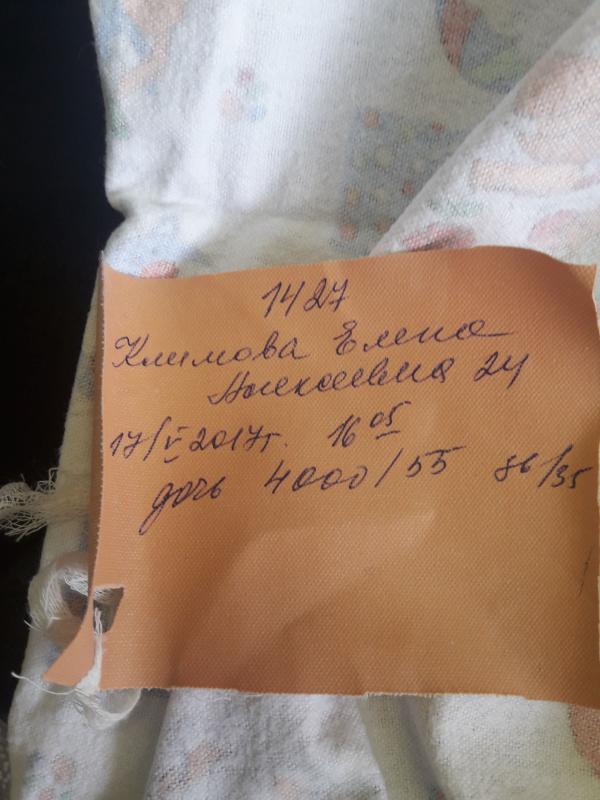 1427
Климова Елена
Алексеевна 24
17/V 2017г. 16 05
дочь 4000/55 36/35